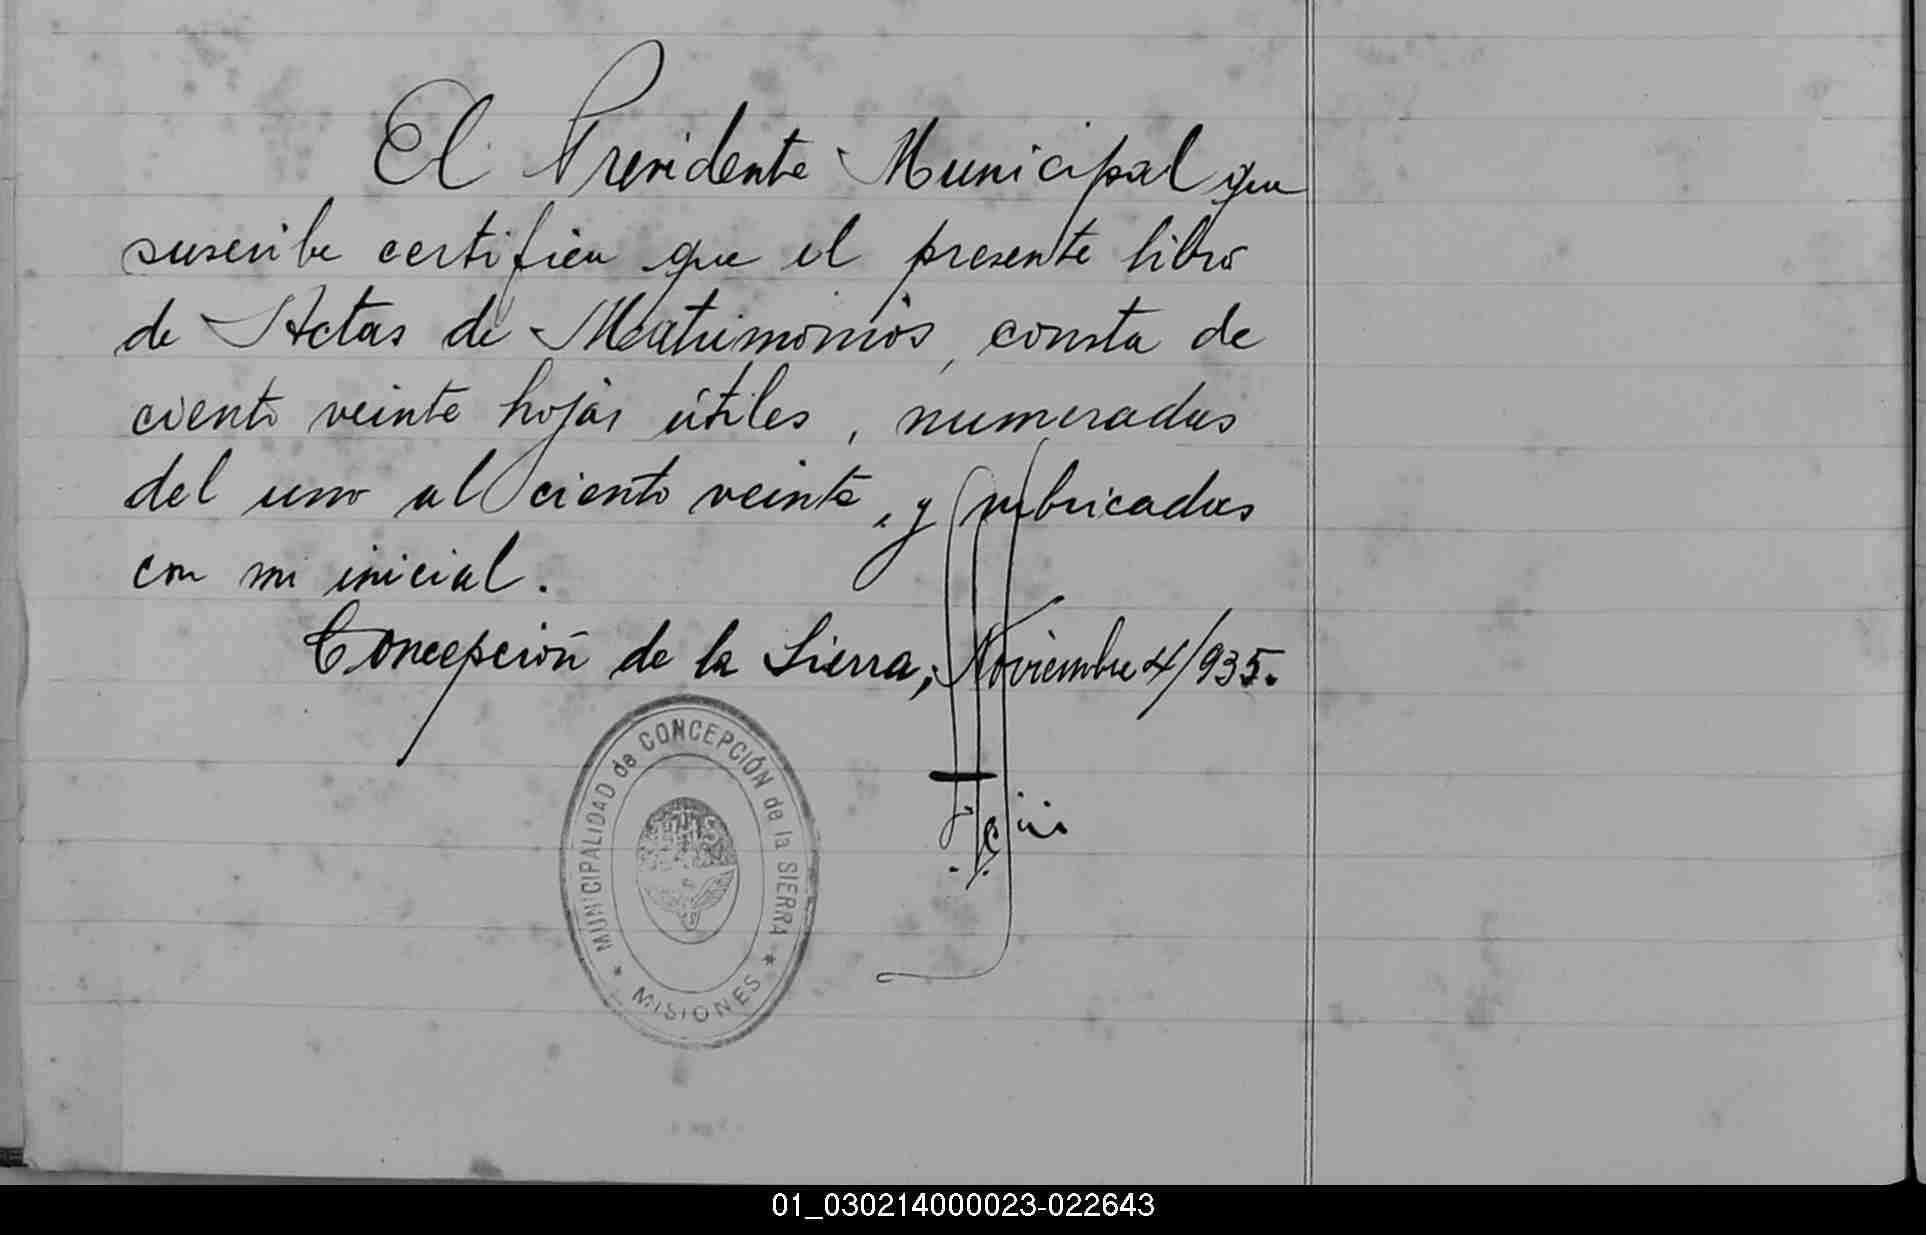 El Presidente Municipal que
suscribe certifica que el presente libro
de Actas de Matrimonios, consta de
ciento veinte hojas útiles, numeradas
del uno al ciento veinte, y rubricadas
con mi inicial.
Concepción de la Sierra, Noviembre 4/935.
MUNICIPALIDAD de CONCEPCIÓN de la SIERRA
* MISIONES *
01_030214000023-022643